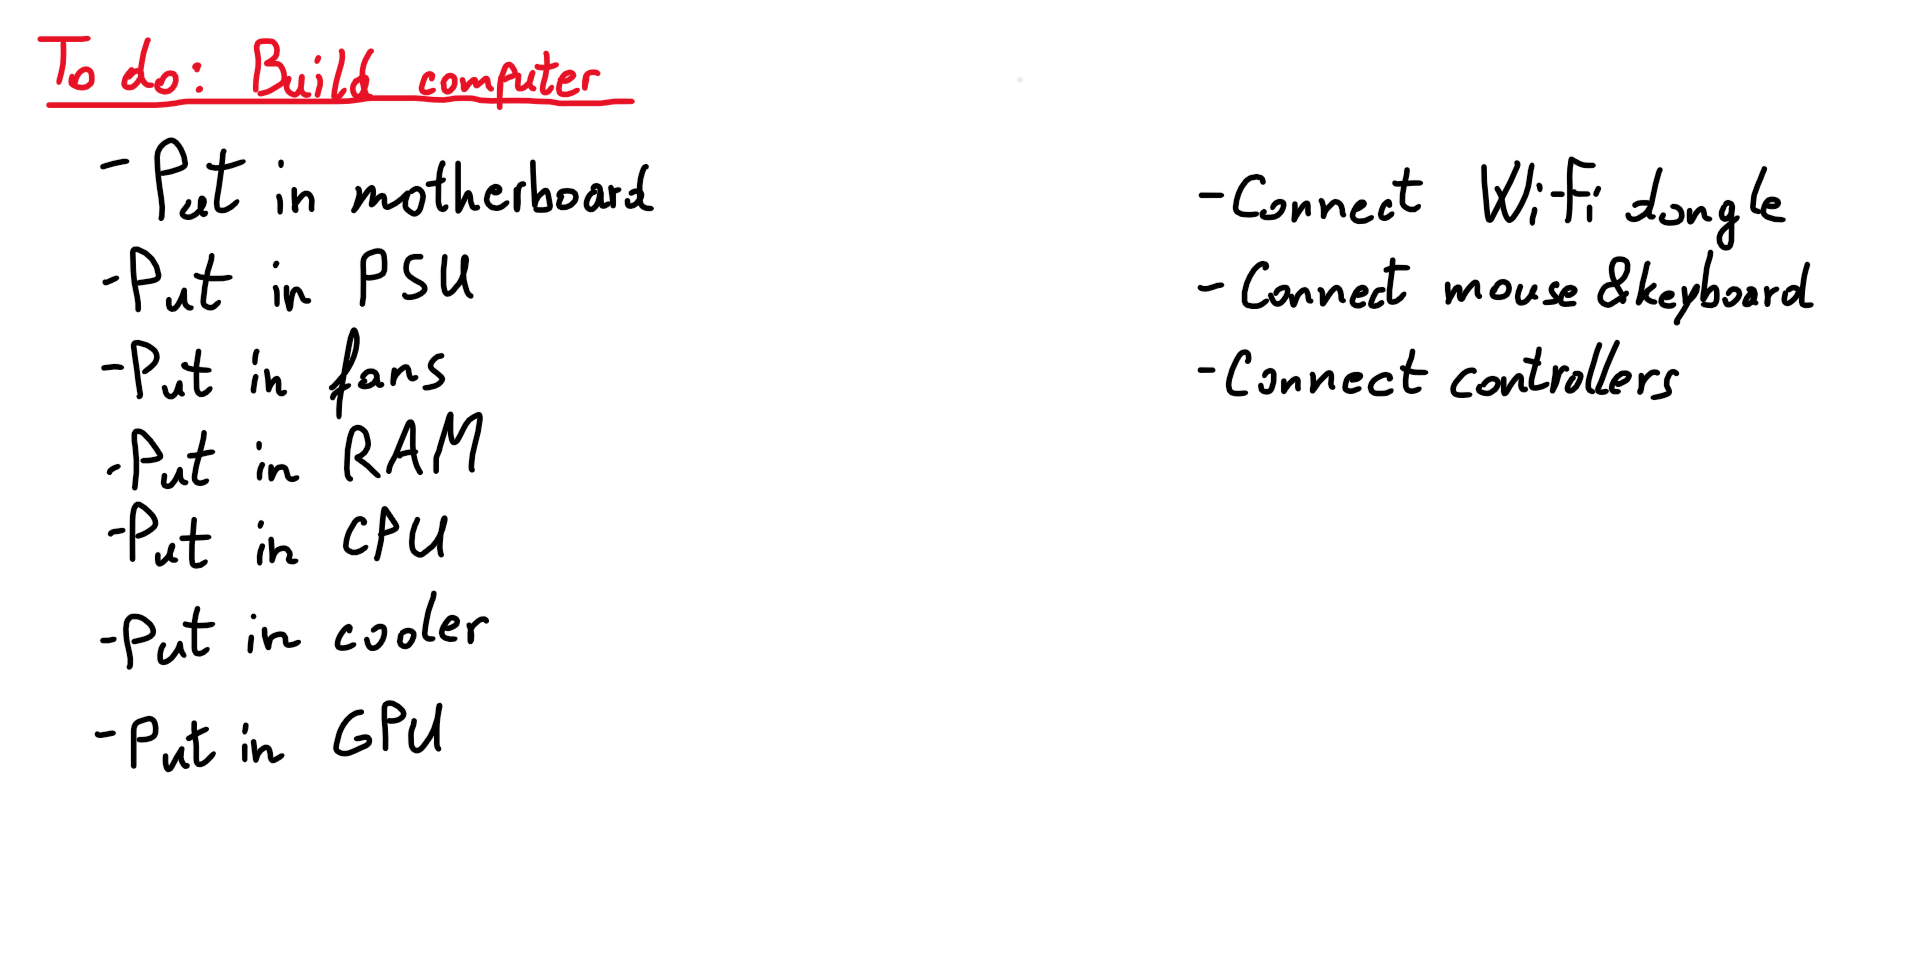 To do: Build computer
- Put in motherboard
- Put in PSU
- Put in fans
- Put in RAM
- Put in CPU
- Put in cooler
- Put in GPU
- Connect Wi-Fi dongle
- Connect mouse & keyboard
- Connect controllers